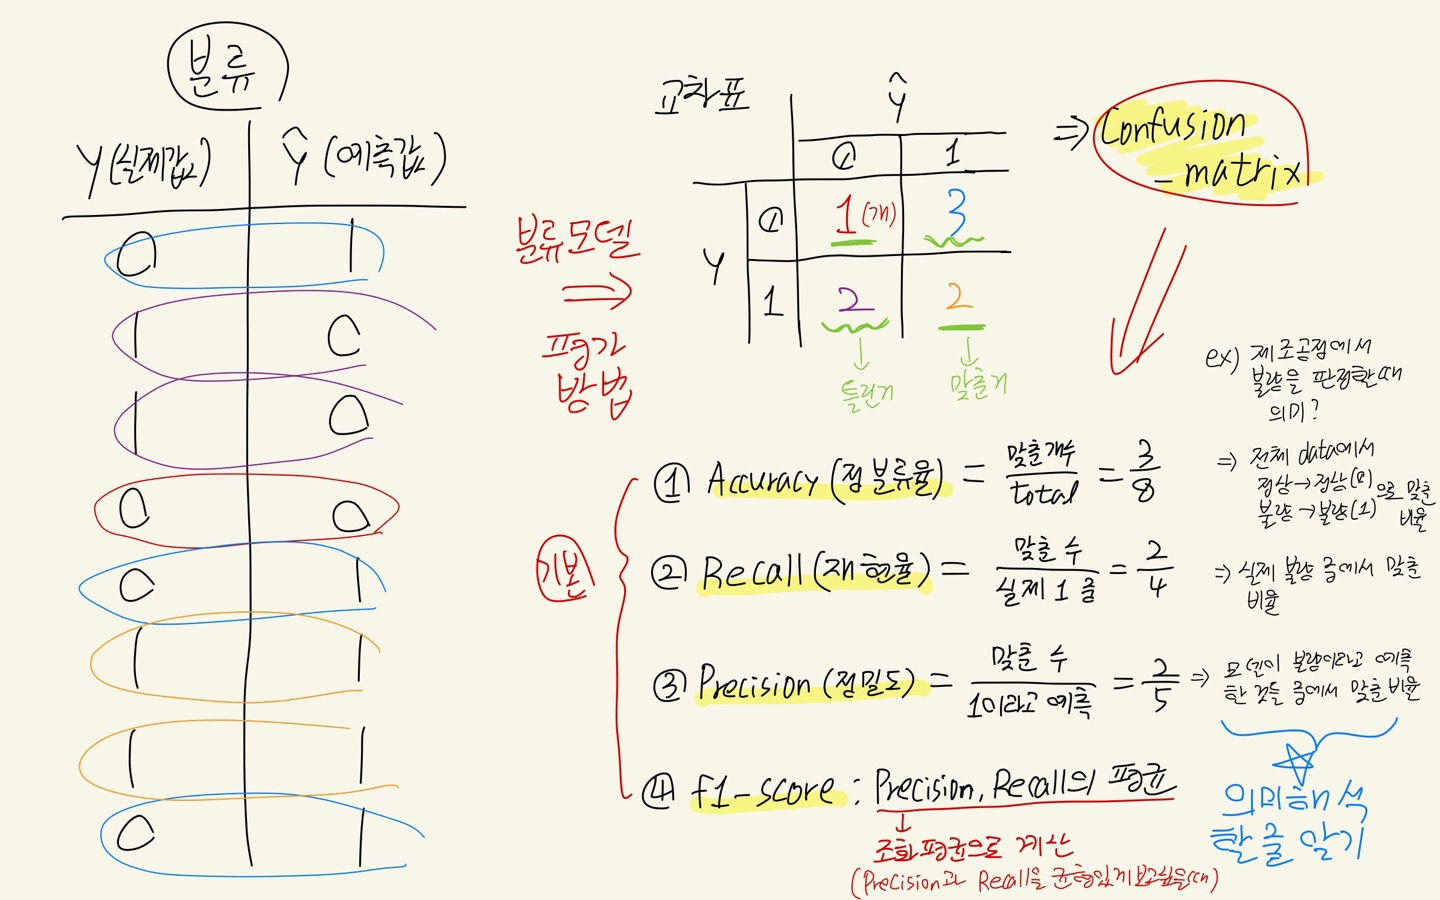 분류
y (실제값) ŷ (예측값)
0 1
1 0
1 0
0 0
0 1
1 1
1 1
0 1
분류모델
⇒
평가
방법
교차표
ŷ
0 1
y 0 1(개) 3
1 2 2
↓ ↓
틀린거 맞춘거
⇒ Confusion
- matrix
ex) 제조공정에서
불량을 판정할때
의미?
기본
① Accuracy (정분류율) = 맞춘개수/total = 3/8
⇒ 전체 data에서
정상→정상(0)
불량→불량(1) 으로 맞춘
비율
② Recall (재현율) = 맞춘 수/실제 1 중 = 2/4
⇒ 실제 불량 중에서 맞춘
비율
③ Precision (정밀도) = 맞춘 수/1이라고 예측 = 2/5
⇒ 모델이 불량이라고 예측
한 것들 중에서 맞춘 비율
④ f1-score : Precision, Recall의 평균
↓
조화평균으로 계산
(Precision과 Recall을 균형있게 보고싶을때)
의미해석
할줄 알기